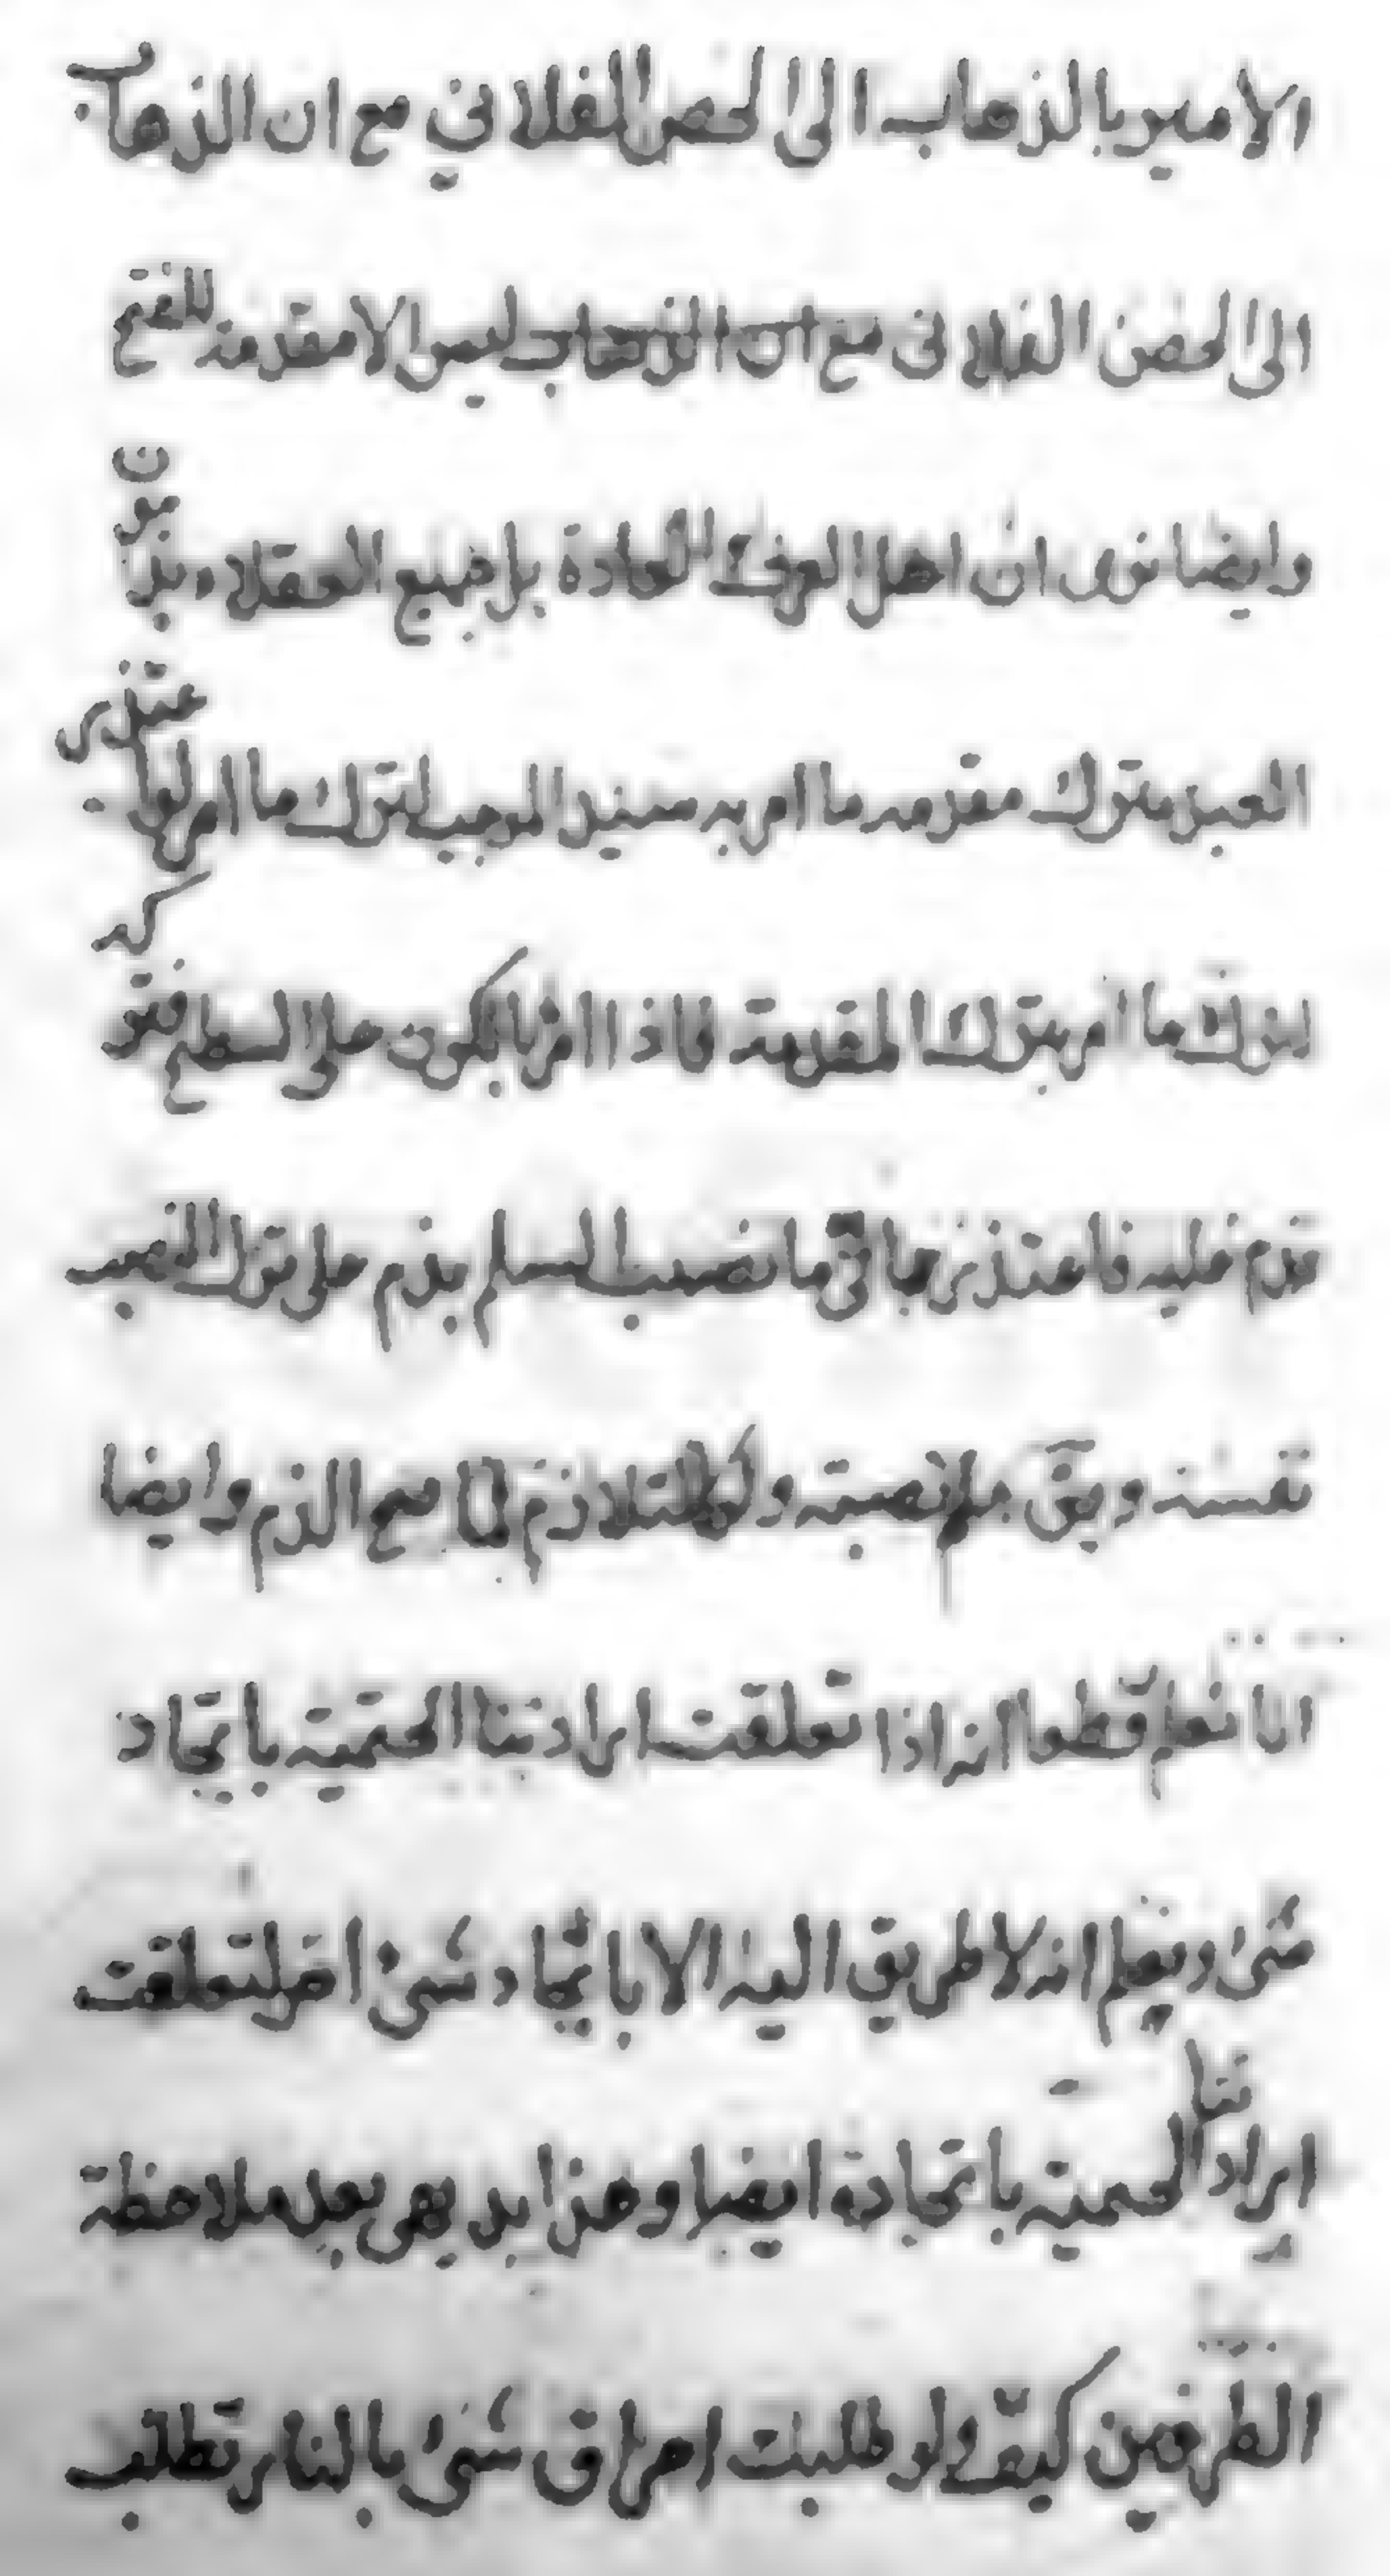 الامير بالذهاب الى الحصن الفلاني مع ان الذهاب
الى الحصن الفلاني مع ان الذهاب ليس الا مقدمة للفتح
وايضا نرى ان اهل العرف العادة بل جميع العقلاء يذمون
العبد بترك مقدمه ما امر به سيد الموجب لترك ما امر
لترك ما امر بترك المقدمة فاذا امر بالكون على السطح فتو
فذم عليه فاعتذر بما في ما نصب السلم يذم على ترك النصب
نفسه ويق ملا نصبته و التلازم لما صح الذم وايضا
انا نعلم قطعا انه اذا تعلقت ارادتنا الحتمية بايجاد
شئ ونعلم انه لا طريق اليه الا بايجاد شئ اخر لتعلقت
ارادتنا الحتميه بايجاده ايضا وهذا بديهى بعد ملاحظة
الطرفين كيف ولو طلبت احراق شئ بالنار تطلب